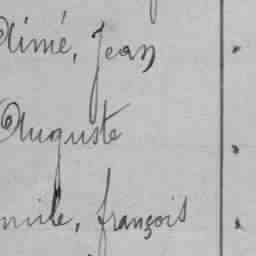 Aimé, Jean
Auguste
françois